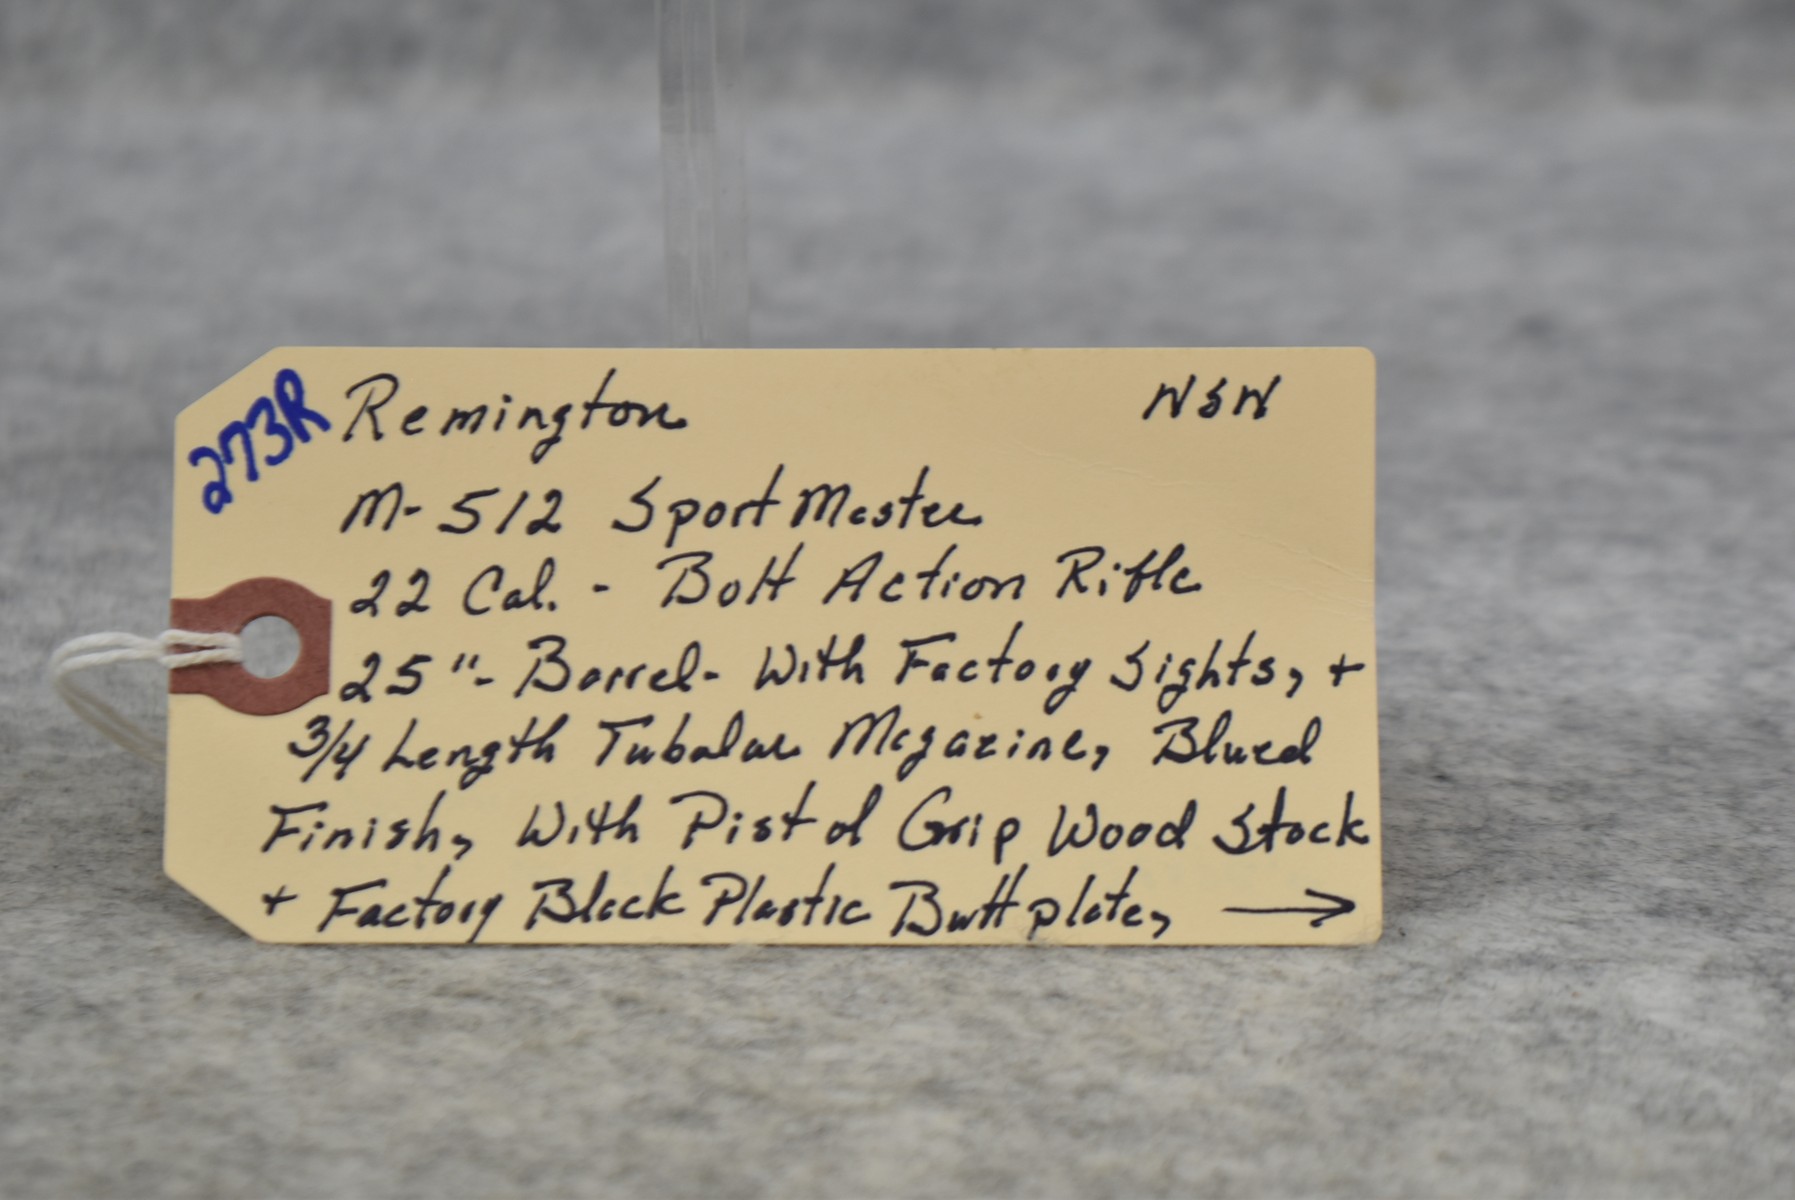 273R
Remington NSN
M-512 Sport Master
22 Cal. - Bolt Action Rifle
25"- Barrel- With Factory Sights, +
3/4 Length Tubular Magazine, Blued
Finish, With Pistol Grip Wood Stock
+ Factory Black Plastic Buttplate, →